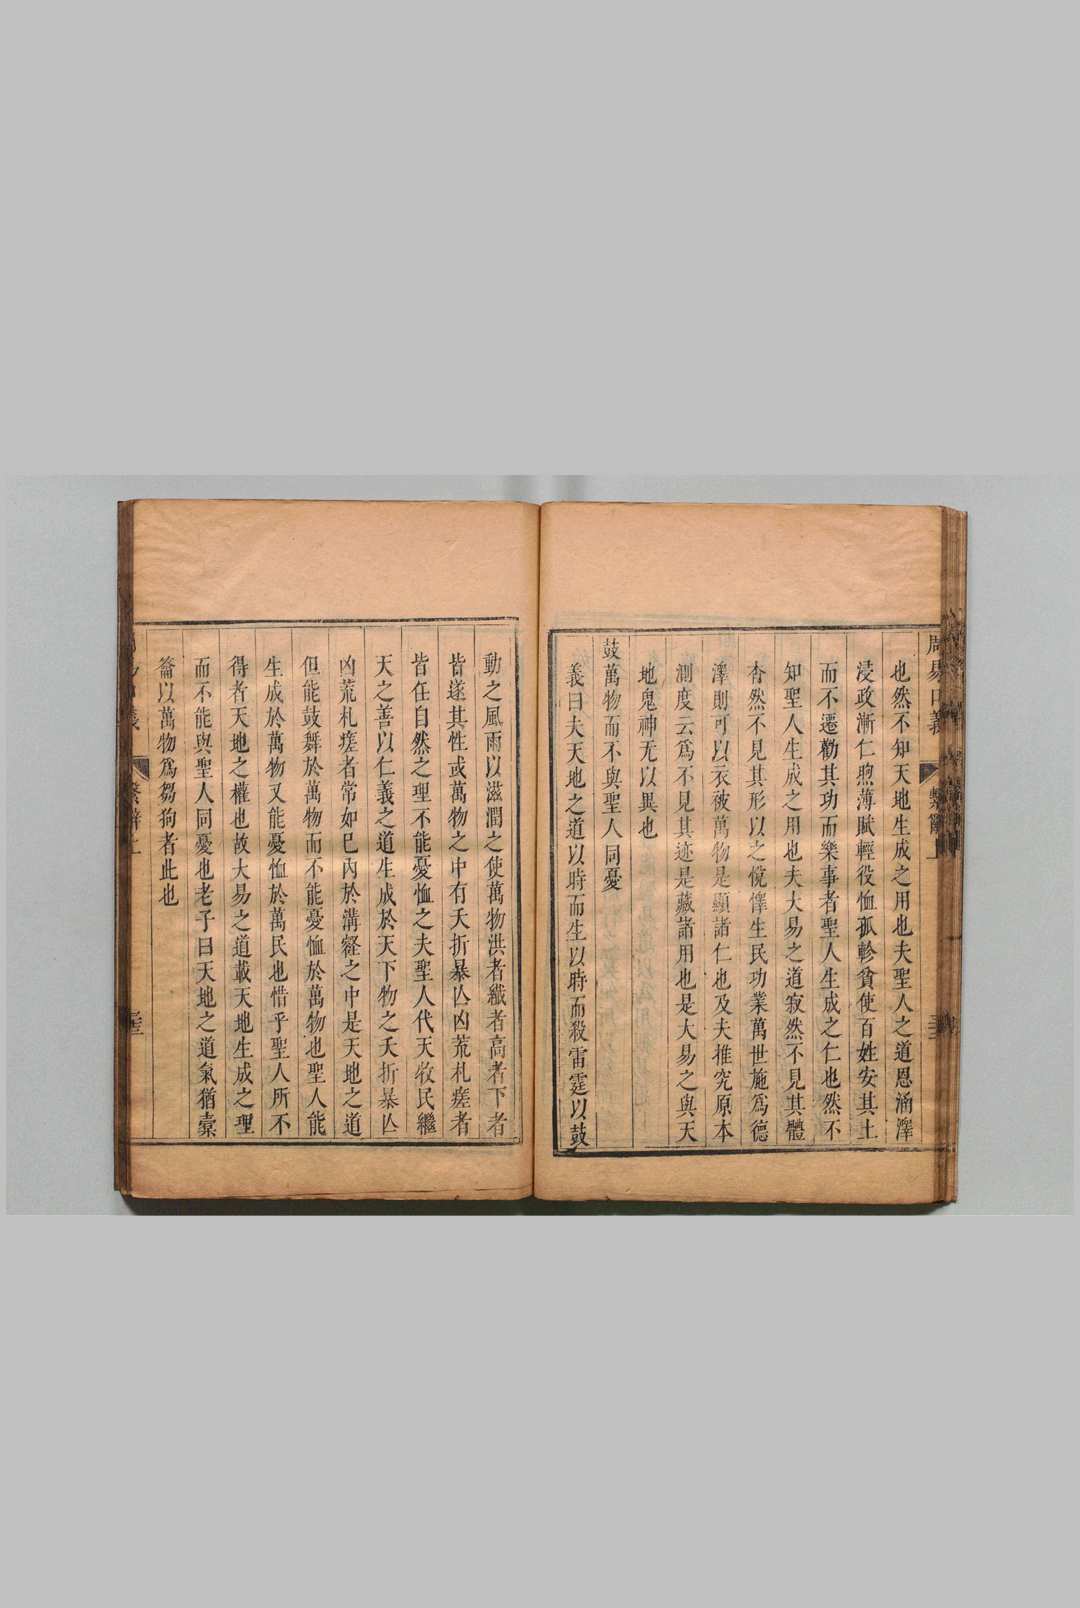 周易口義 繫辭上
也然不知天地生成之用也夫聖人之道恩涵澤
浸政漸仁煦薄賦輕役恤孤軫貧使百姓安其土
而不遷勸其功而樂事者聖人生成之仁也然不
知聖人生成之用也夫大易之道寂然不見其體
杳然不見其形以之悅懌生民功業萬世施爲德
澤則可以衣被萬物是顯諸仁也及夫推究原本
測度云爲不見其迹是藏諸用也是大易之與天
地鬼神无以異也
鼓萬物而不與聖人同憂
義曰夫天地之道以時而生以時而殺雷霆以鼓
動之風雨以滋潤之使萬物洪者纖者高者下者
皆遂其性或萬物之中有夭折暴亾凶荒札瘥者
皆任自然之理不能憂恤之夫聖人代天牧民繼
天之善以仁義之道生成於天下物之夭折暴亾
凶荒札瘥者常如已內於溝壑之中是天地之道
但能鼓舞於萬物而不能憂恤於萬物也聖人能
生成於萬物又能憂恤於萬民也惜乎聖人所不
得者天地之權也故大易之道載天地生成之理
而不能與聖人同憂也老子曰天地之道氣猶槖
籥以萬物爲芻狗者此也
繫辭上